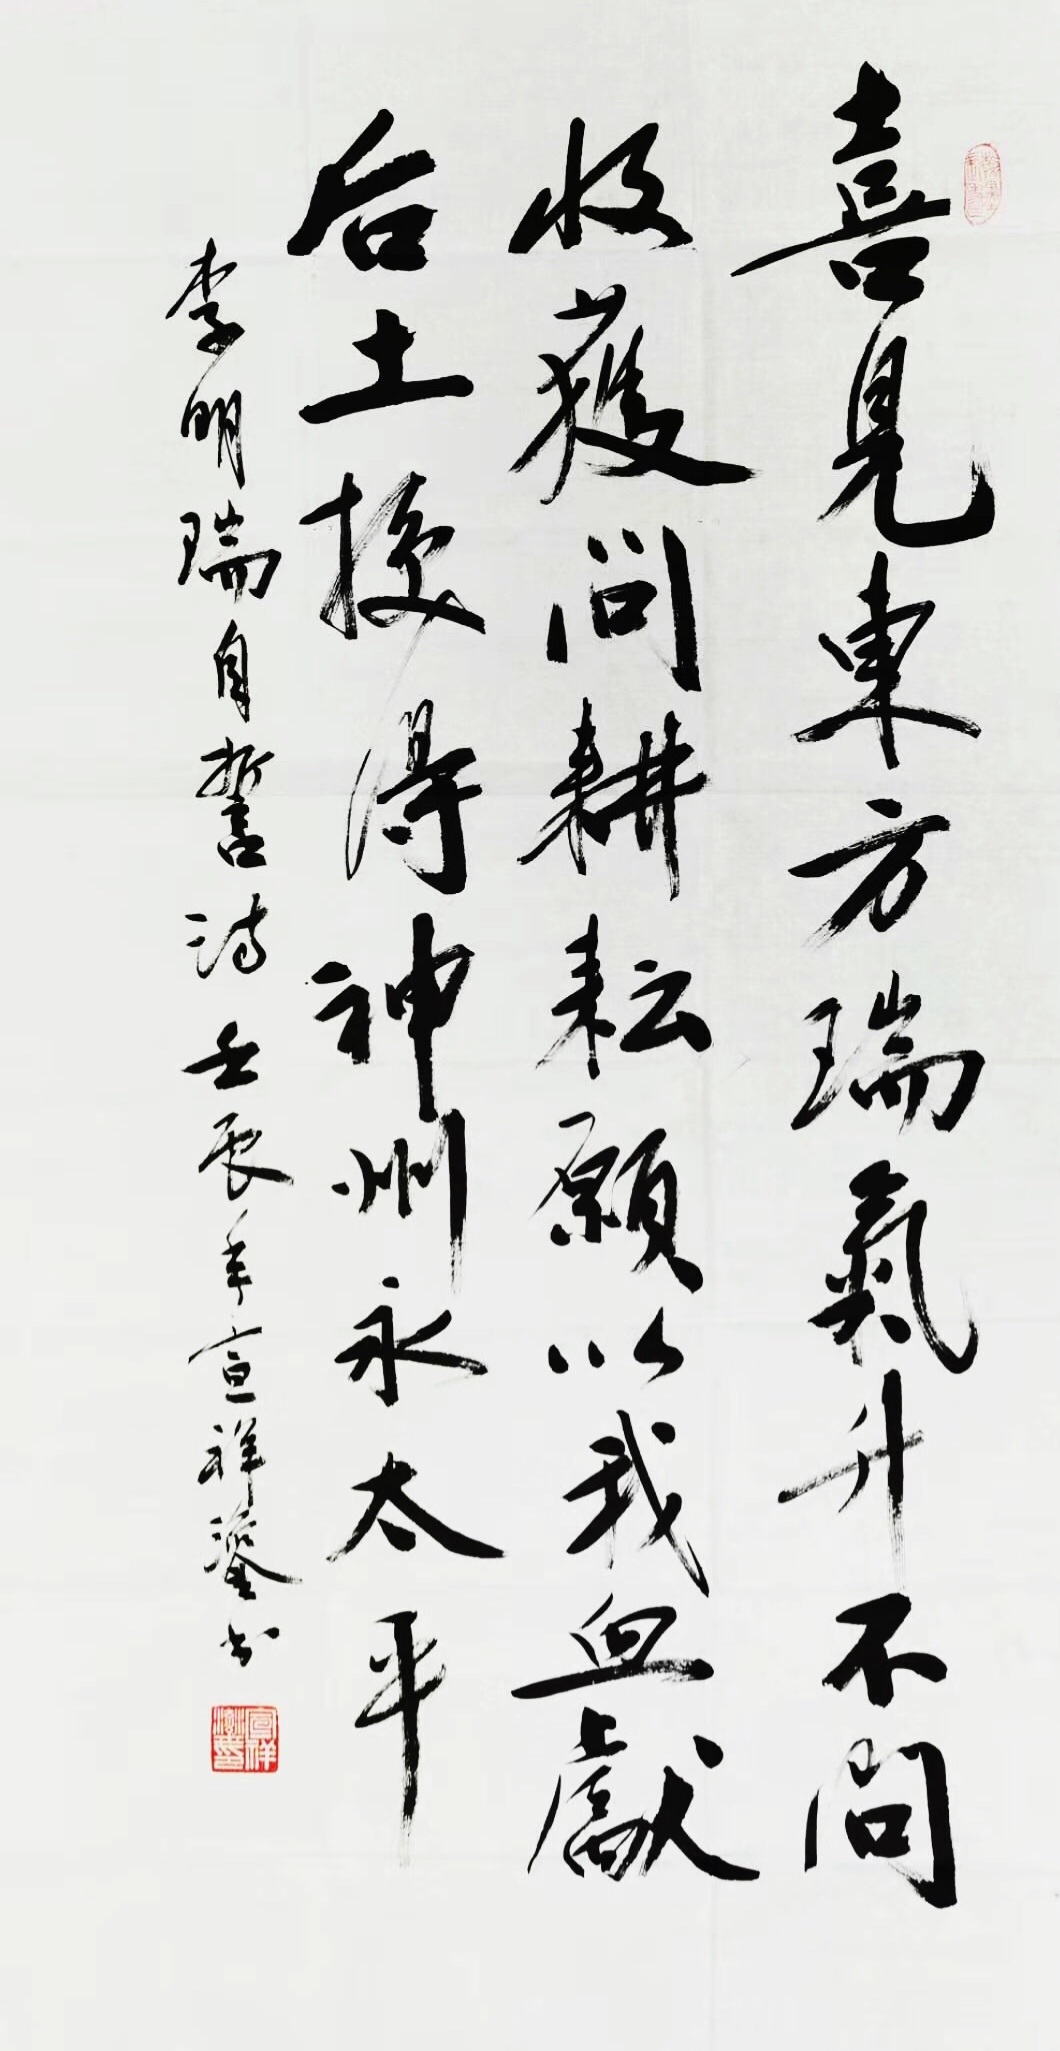 喜見東方瑞氣升不問
收獲問耕耘願以我血獻
后土換得神州永太平
李明瑞自誓詩 壬辰年宣祥鎏书
宣祥鎏印